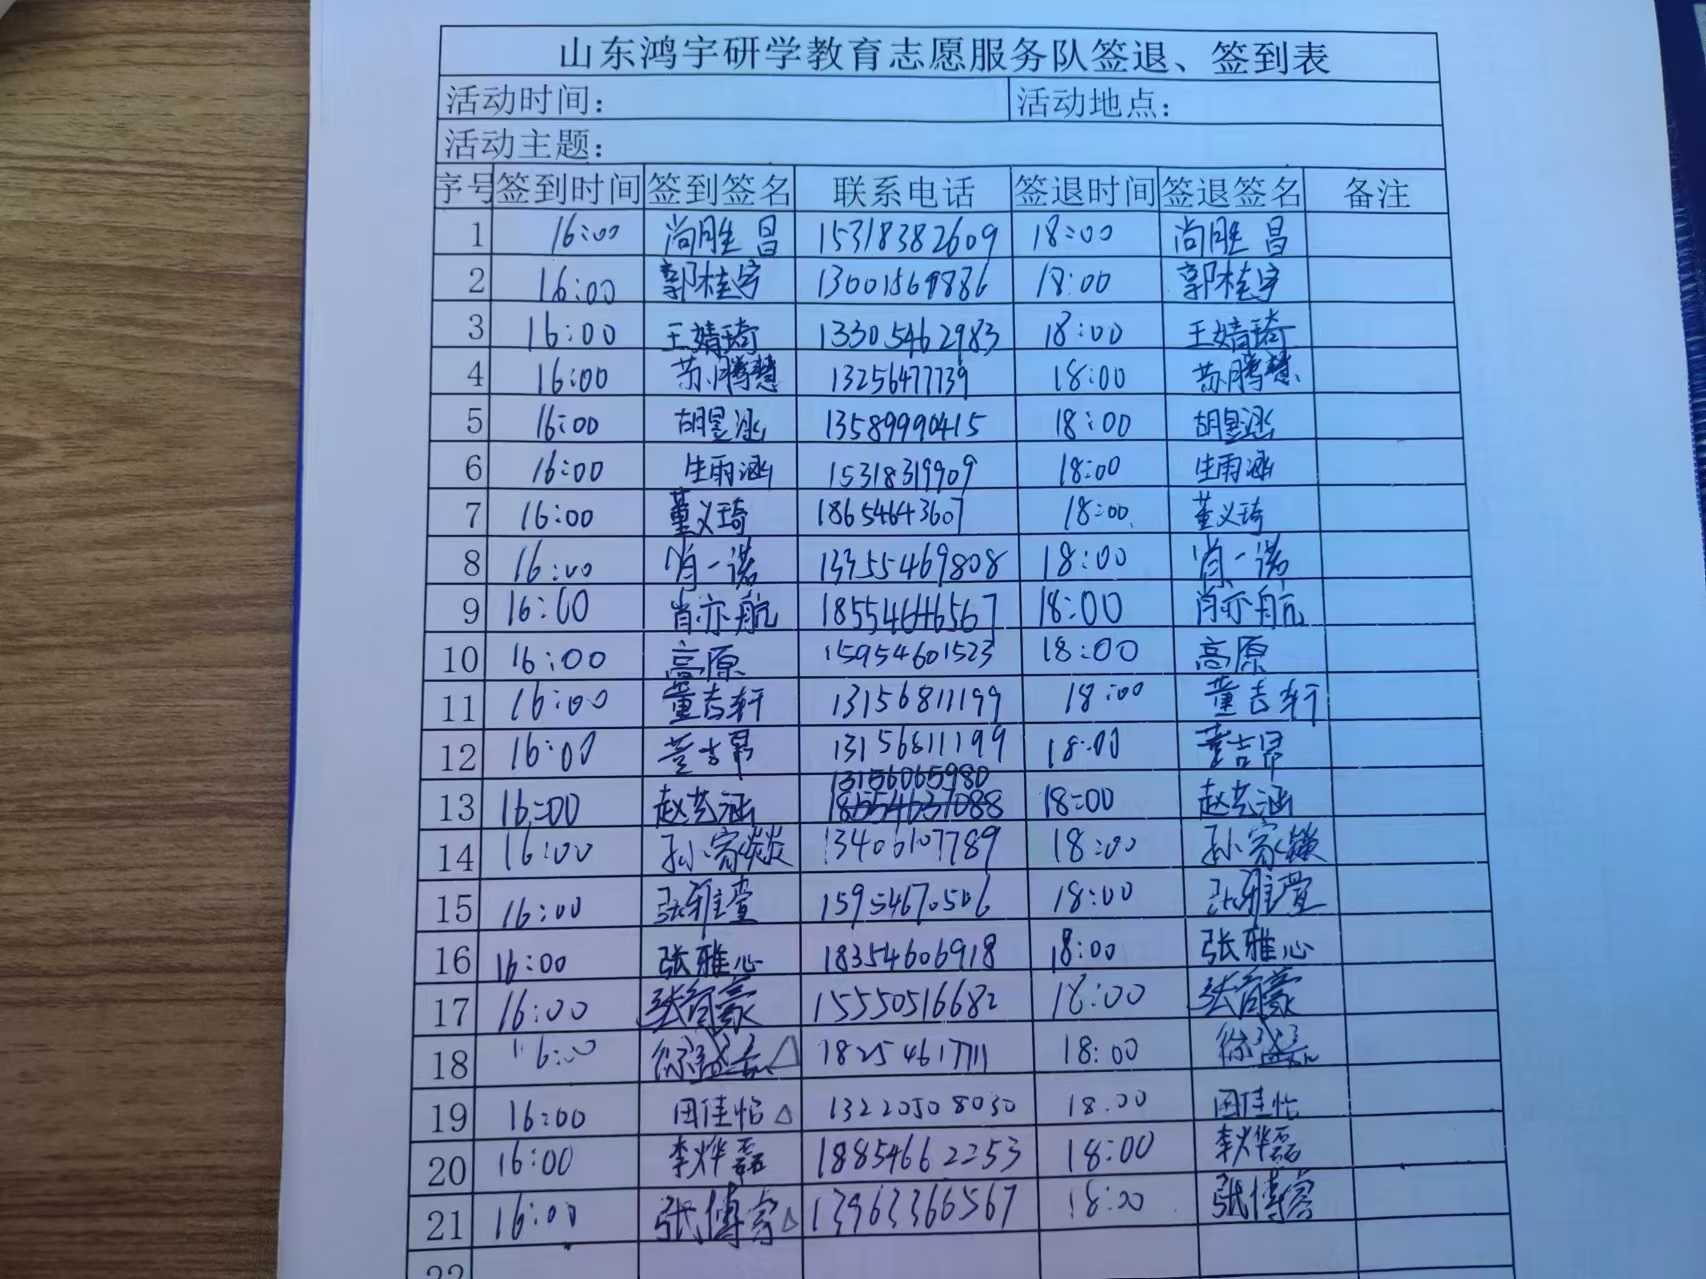 山东鸿宇研学教育志愿服务队签退、签到表
活动时间： 活动地点：
活动主题：
序号 签到时间 签到签名 联系电话 签退时间 签退签名 备注
1 16:00 尚胜昌 15318382609 18:00 尚胜昌
2 16:00 郭桂宇 13001569886 18:00 郭桂宇
3 16:00 王婧琦 13305462983 18:00 王婧琦
4 16:00 苏腾慧 13256477739 18:00 苏腾慧
5 16:00 胡昱泓 13589990415 18:00 胡昱泓
6 16:00 生雨涵 15318319909 18:00 生雨涵
7 16:00 董义琦 18654643607 18:00 董义琦
8 16:00 肖一诺 13355469808 18:00 肖一诺
9 16:00 肖亦航 18554646567 18:00 肖亦航
10 16:00 高原 15954601523 18:00 高原
11 16:00 董吉轩 13156811199 18:00 董吉轩
12 16:00 董吉昂 13156811199 18:00 董吉昂
13156065980
13 16:00 赵艺涵 18:00 赵艺涵
14 16:00 孙家燚 13406107789 18:00 孙家燚
15 16:00 张雅萱 15954670506 18:00 张雅萱
16 16:00 张雅心 18354606918 18:00 张雅心
17 16:00 15550516682 18:00
18 16:00 18254617111 18:00
19 16:00 田佳怡 13220508030 18:00 田佳怡
20 16:00 李烨磊 18854662253 18:00 李烨磊
21 16:00 张傅睿 13963366567 18:00 张傅睿
22